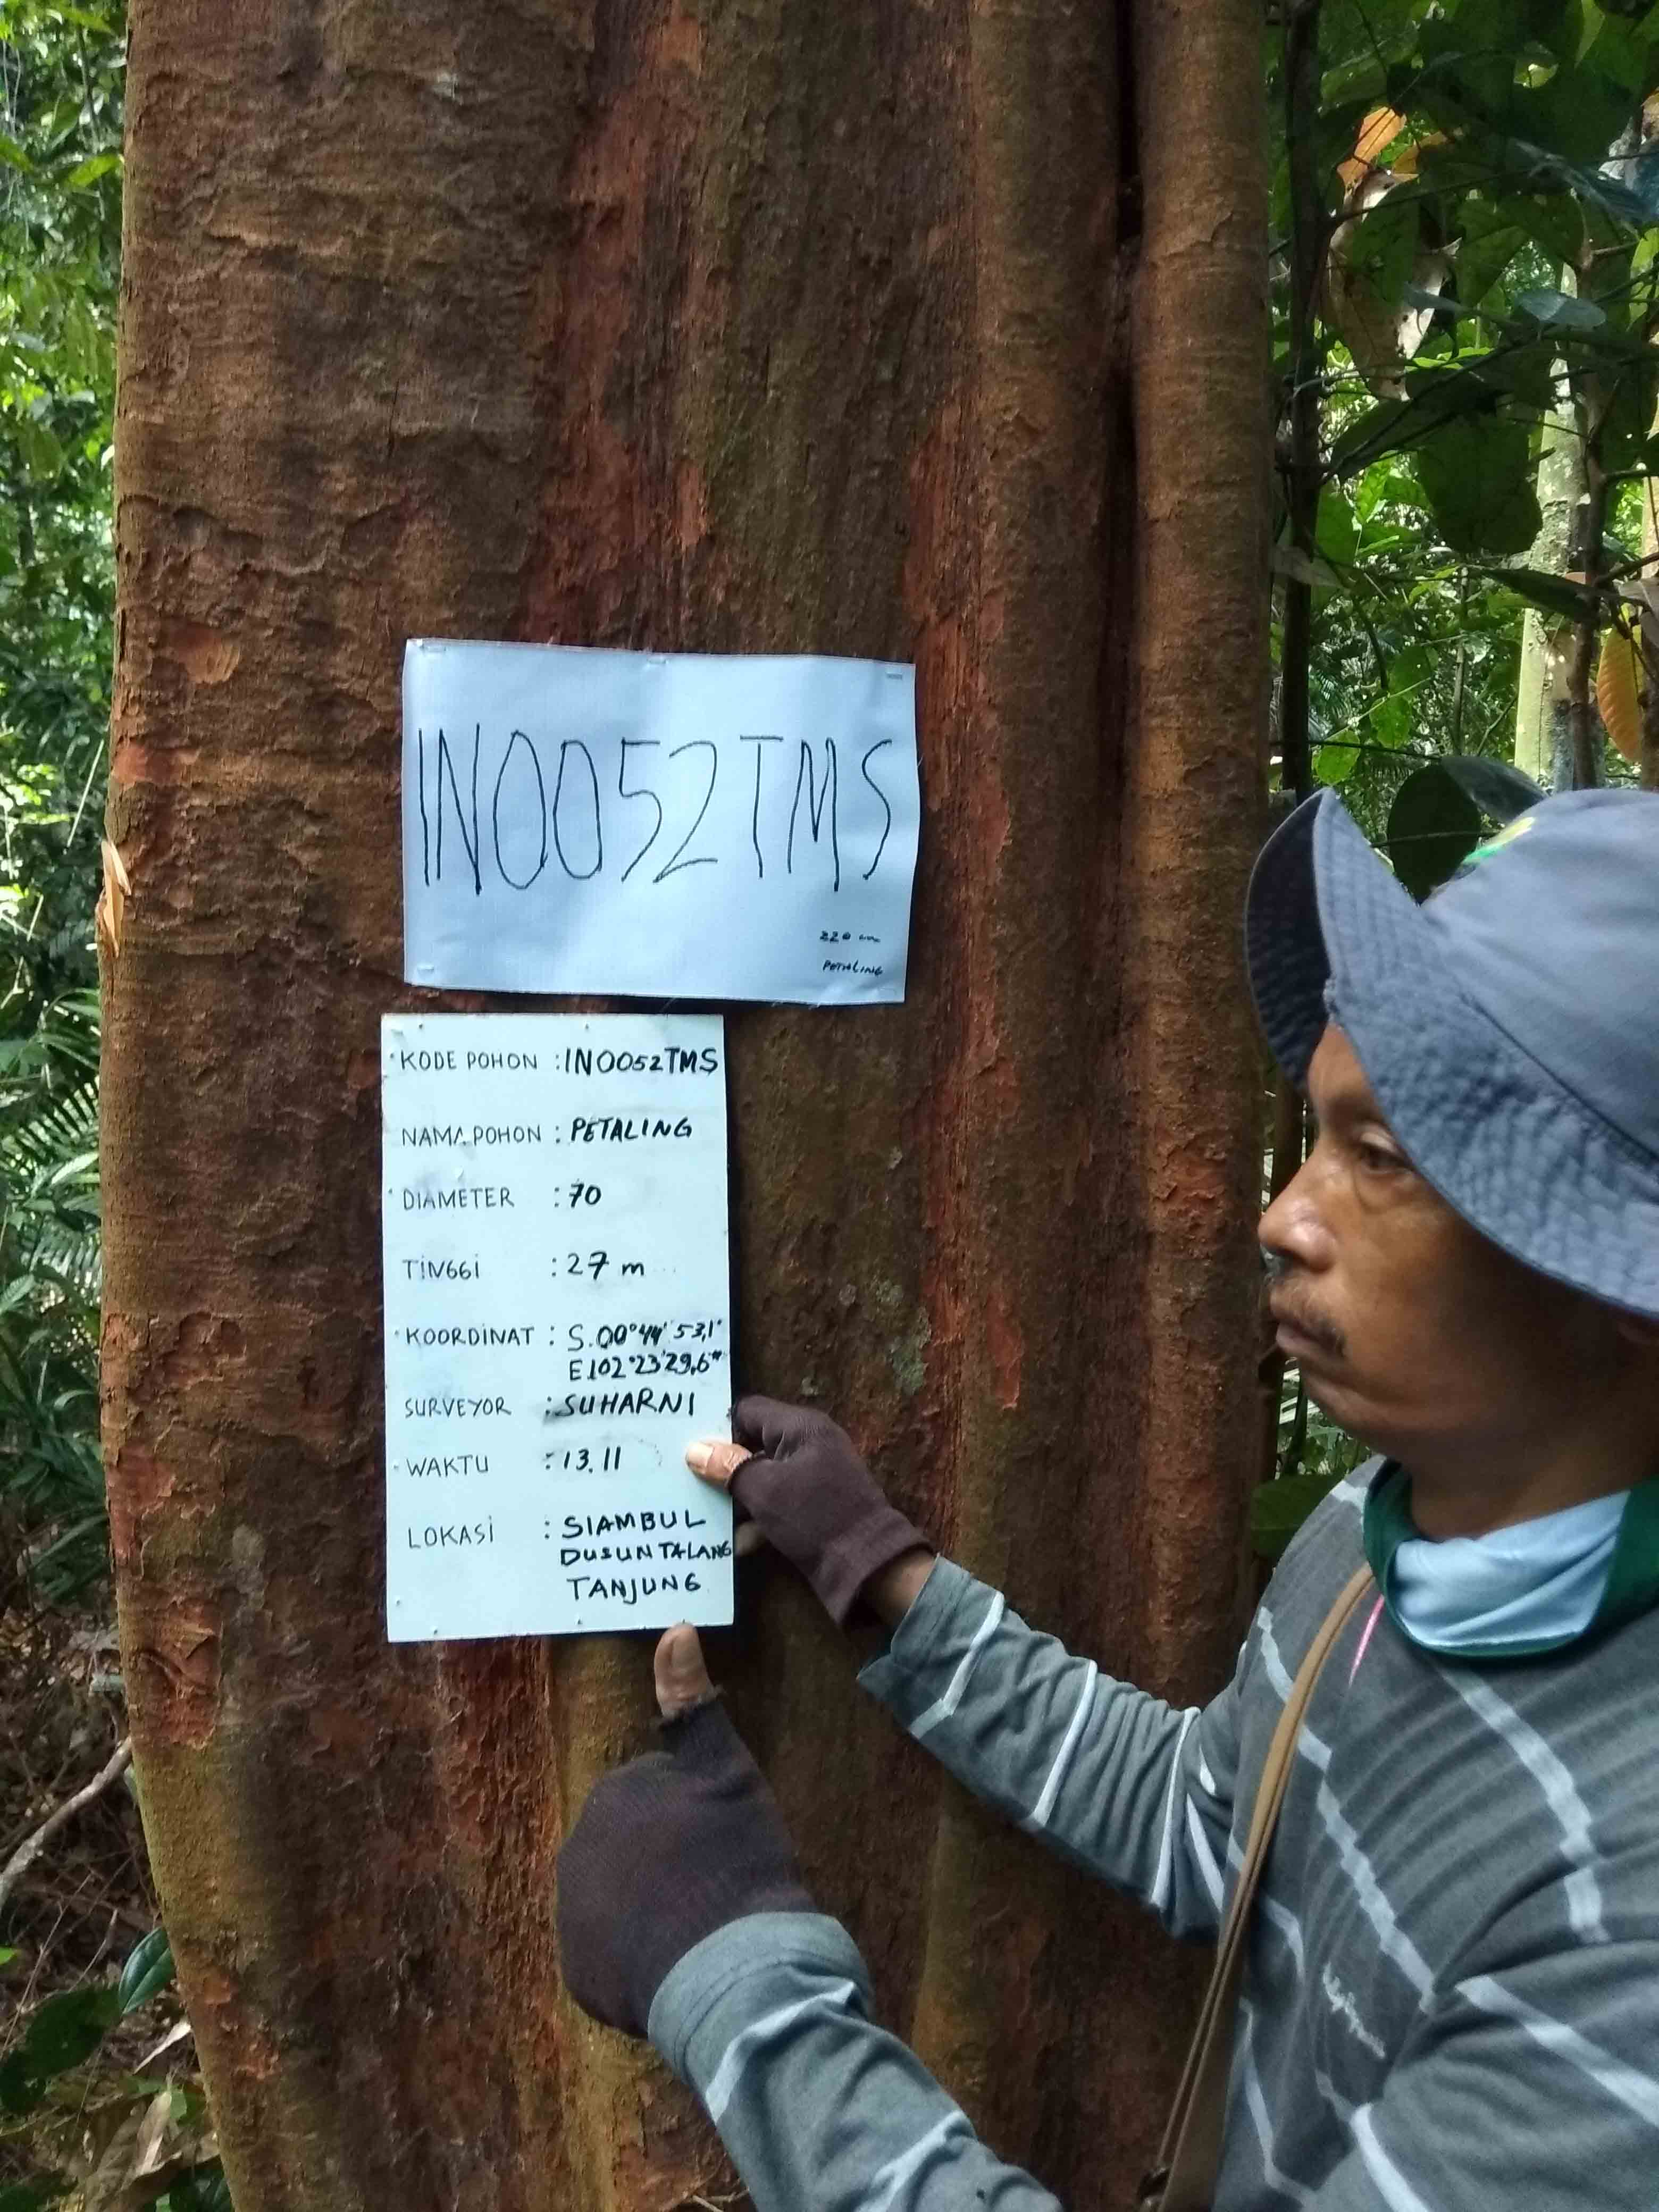 IN0052TMS
220 cm
PETALING
KODE POHON : IN0052TMS
NAMA POHON : PETALING
DIAMETER : 70
TINGGI : 27 m
KOORDINAT : S.00°44' 53,1"
E102°23'29,6"
SURVEYOR : SUHARNI
WAKTU : 13.11
LOKASI : SIAMBUL
DUSUN TALANG
TANJUNG